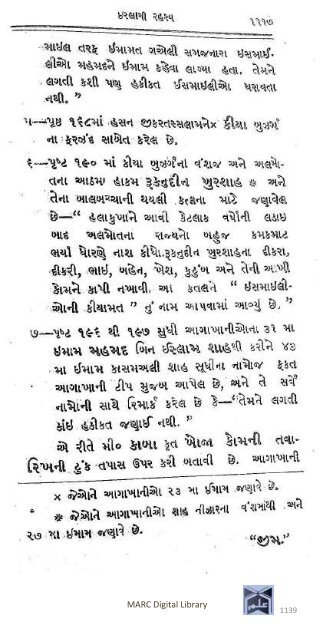 ઇસ્લામી રહસ્ય ૧૧૧૭
માઇલ તરફ ઇમામત ગએલી સમજનારા ઇસમાઇ-
લીઓ મહમદને ઈમામ કહેવા લાગ્યા હતા. તેમને
લગતી કશી પણ હકીકત ઈસમાઈલીઓ ધરાવતા
નથી. ”
૫—પૃષ્ઠ ૧૬૮માં હસન જીકરતસ્સલામને× કીયા બુઝર્ગ
ના ફરજંદ સાબિત કરેલ છે.
૬—પૃષ્ટ ૧૯૦ માં કીયા બુઝર્ગના વંશજ અને અલમો-
તના આઠમા હાકમ રૂકનુદીન ખુરશાહ * અને
તેના બાલબચ્ચાની થયલી કત્લના માટે જણાવેલ
છે—“ હલાકુખાને આવી કેટલાક વર્ષોની લડાઇ
બાદ અલમોતના રાજ્યનો બહુજ કમકમાટ
ભર્યા ધોરણે નાશ કીધો. રૂકનુદીન ખુરશાહના દીકરા,
દીકરી, ભાઇ, બહેન, ખેશ, કુટુંબ અને તેની આખી
કોમને કાપી નખાવી. આ કતલને “ ઇસમાઇલી-
ઓની કીયામત ” નું નામ આપવામાં આવ્યું છે. ”
૭—પૃષ્ટ ૧૯૬ થી ૧૯૭ સુધી આગાખાનીઓના ૩૧ મા
ઇમામ મહમદ બિન ઇસ્લામ શાહથી કરીને ૪૩
મા ઇમામ કાસમઅલી શાહ સૂધીના નામોજ ફકત
આગાખાની ટીપ મુજબ આપેલ છે, અને તે સર્વે
નામોની સાથે રિમાર્ક કરેલ છે કે—“તેમને લગતી
કાંઇ હકીકત જણાઈ નથી.”
એ રીતે મી૦ કાબા કૃત ખોજા કોમની તવા-
રિખની ટુંક તપાસ ઉપર કરી બતાવી છે. આગાખાની
× જેઓને આગાખાનીઓ ૨૩ મા ઈમામ જણાવે છે.
* જેઓને આગાખાનીઓ શાહ નીઝારના વંશમાંથી અને
૨૭ મા ઇમામ જણાવે છે.
“જીમ.”
MARC Digital Library
1139